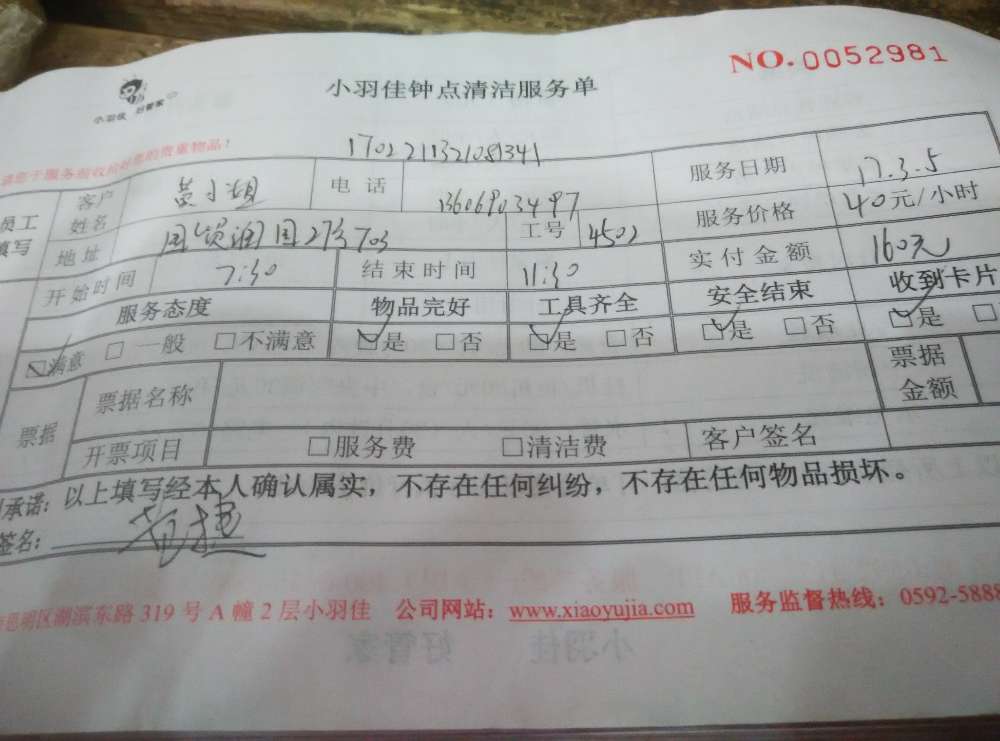 NO.0052981
小羽佳钟点清洁服务单
小羽佳 好管家
您于服务前收拾好您的贵重物品！
1702211321081341
员工填写 客户姓名 黄小姐 电话 13606903497 服务日期 17.3.5
地址 国贸润园27# 703 工号 4502 服务价格 40元/小时
开始时间 7:30 结束时间 11:30 实付金额 160元
服务态度 物品完好 工具齐全 安全结束 收到卡片
☑满意 □一般 □不满意 ☑是 □否 ☑是 □否 ☑是 □否 ☑是 □
票据 票据名称 票据金额
开票项目 □服务费 □清洁费 客户签名
承诺：以上填写经本人确认属实，不存在任何纠纷，不存在任何物品损坏。
签名：
思明区湖滨东路 319 号 A 幢 2 层小羽佳 公司网站：www.xiaoyujia.com 服务监督热线：0592-5888